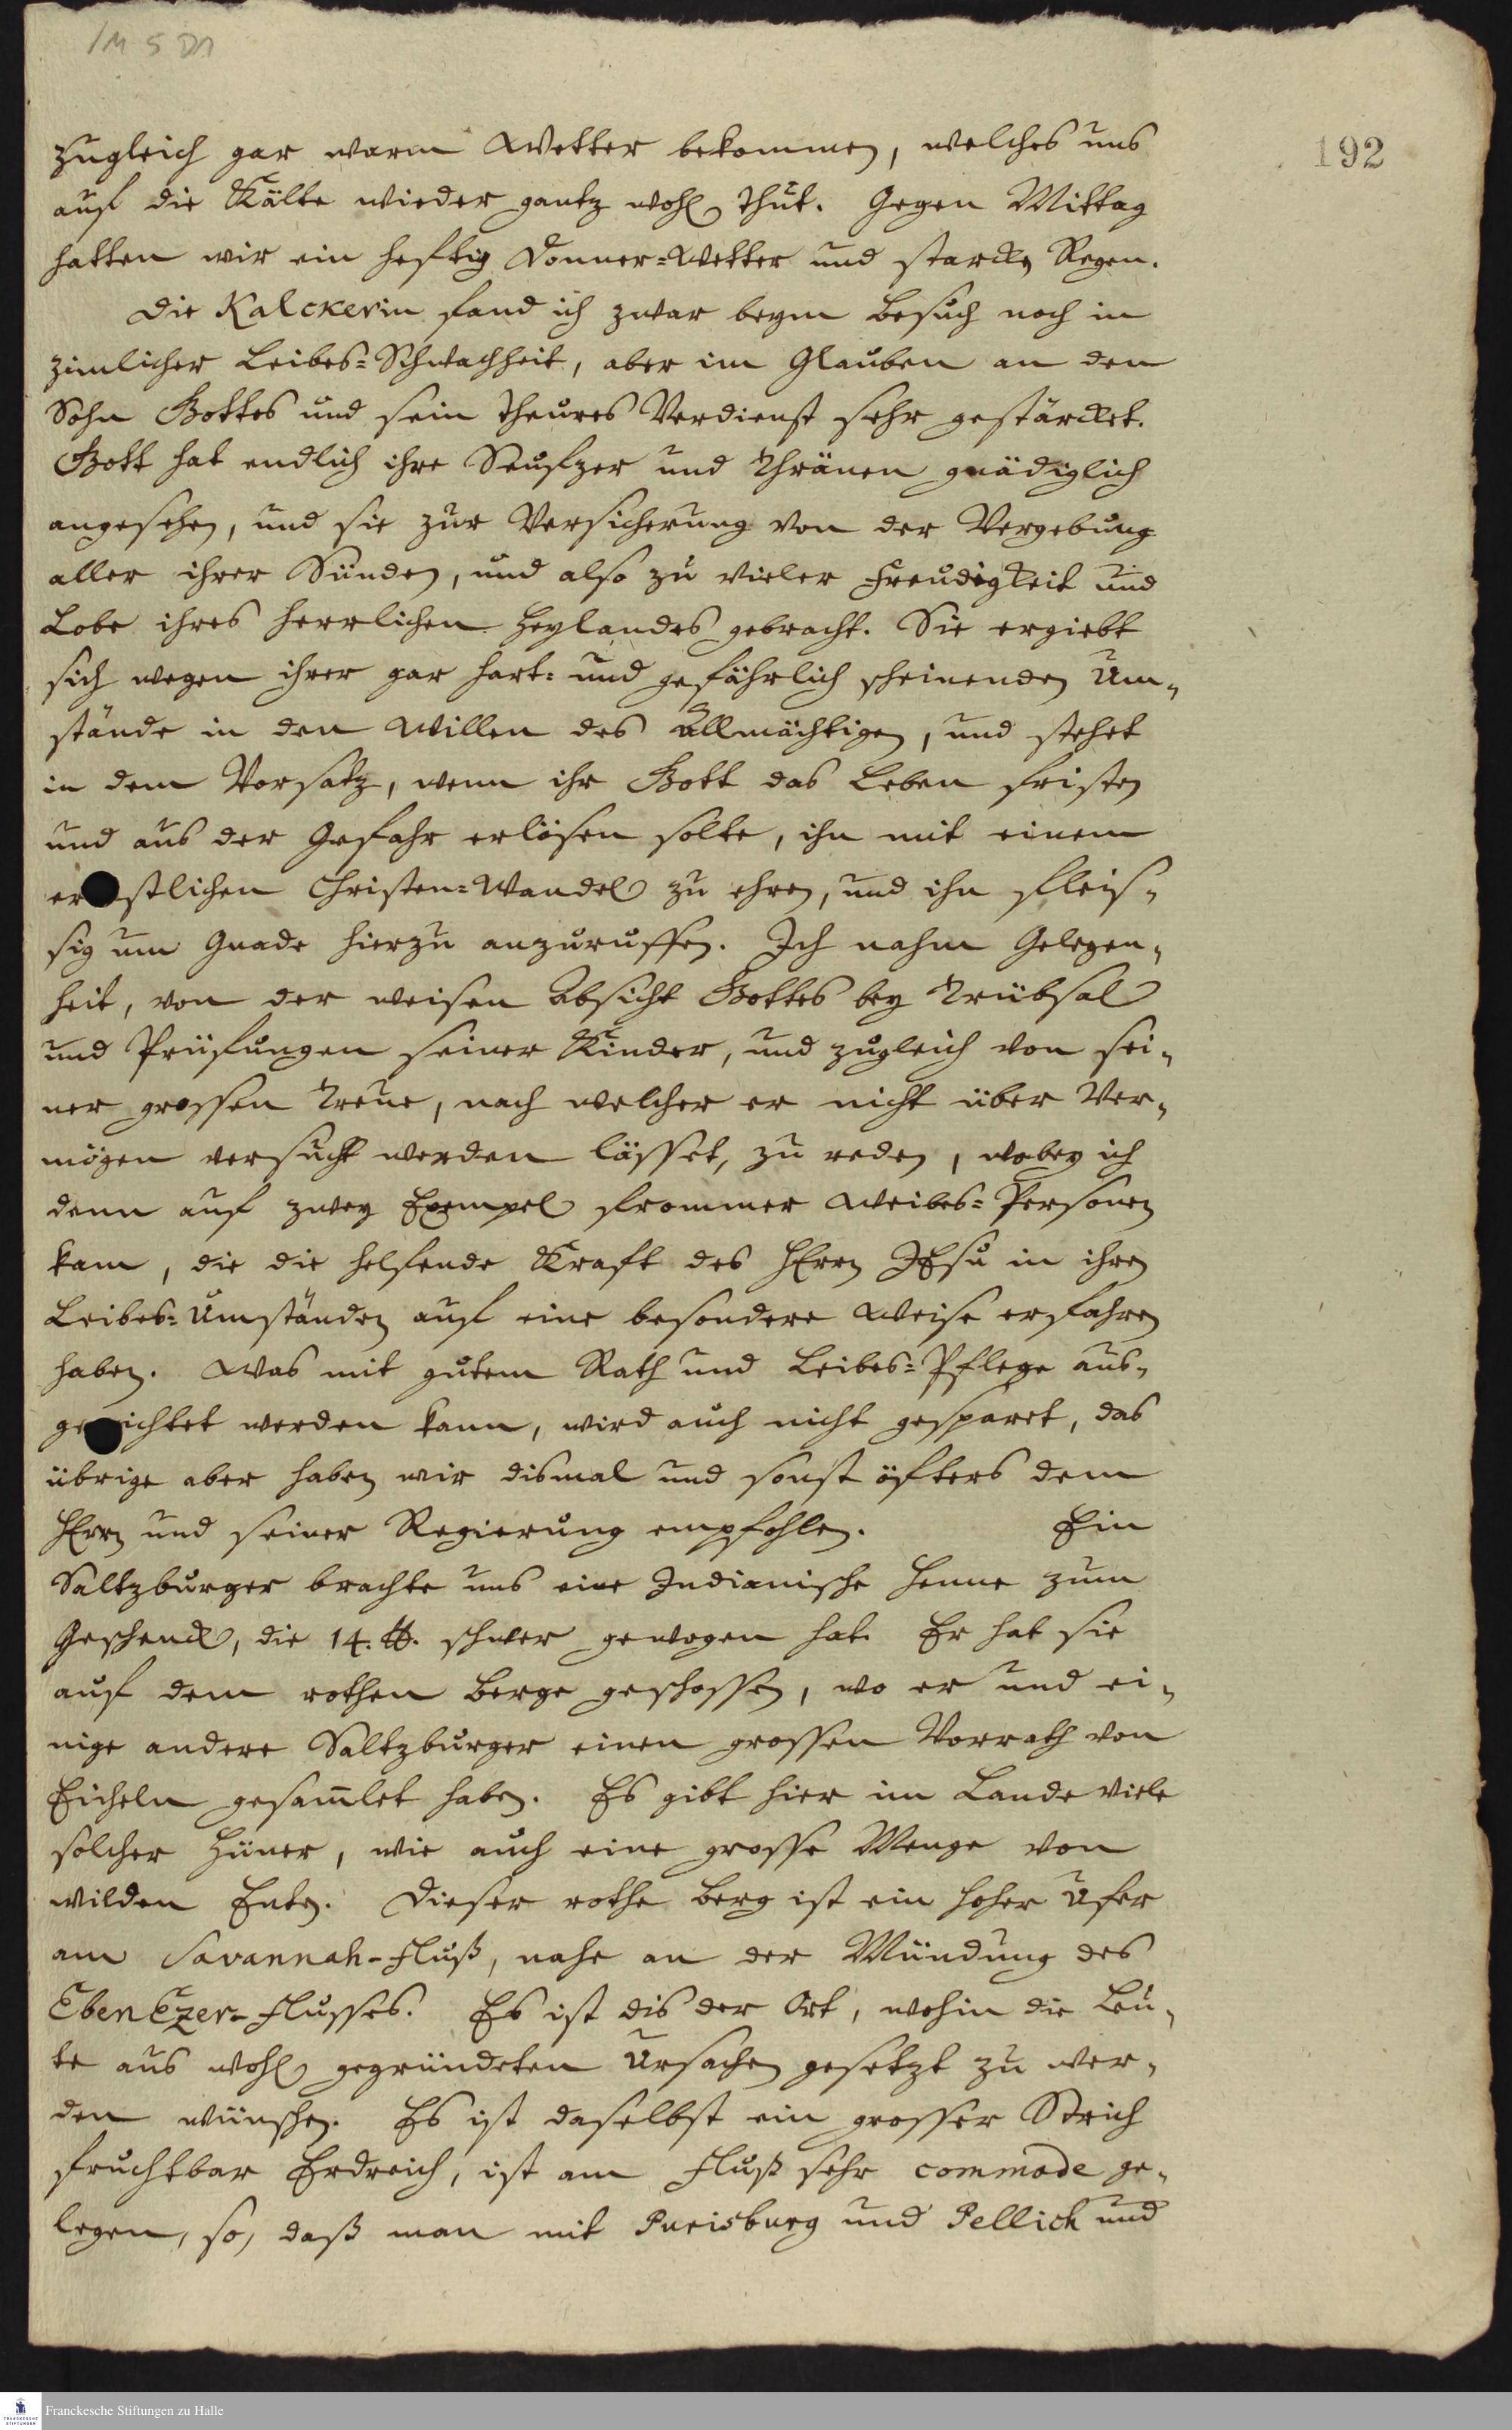 1M 5 D1
192
zugleich gar warm Wetter bekommen, welches uns
auf die Kälte wieder gantz wohl thut. Gegen Mittag
hatten wir ein heftig Donner-Wetter und starcken Regen.
Die Kalckerin fand ich zwar beym Besuch noch in
zimlicher Leibes-Schwachheit, aber im Glauben an den
Sohn Gottes und sein theures Verdienst sehr gestärcket.
Gott hat endlich ihre Seufzer und Thränen gnädiglich
angesehen, und sie zur Versicherung von der Vergebung
aller ihrer Sünden, und also zu vieler Freudigkeit und
Lobe ihres herrlichen Heylandes gebracht. Sie ergiebt
sich wegen ihrer gar hart- und gefährlich scheinenden Um-
stände in den Willen des Allmächtigen, und stehet
in dem Vorsatz, wenn ihr Gott das Leben fristen
und aus der Gefahr erlösen solte, ihn mit einem
er stlichen Christen-Wandel zu ehren, und ihn fleis-
sig um Gnade hierzu anzuruffen. Ich nahm Gelegen-
heit, von der weisen Absicht Gottes bey Trübsal
und Prüfungen seiner Kinder, und zugleich von sei-
ner grossen Treue, nach welcher er nicht über Ver-
mögen versucht werden lässet, zu reden, wobey ich
denn auf zwey Exempel frommer Weibes-Personen
kam, die die helfende Kraft des HErrn JEsu in ihren
Leibes-Umständen auf eine besondere Weise erfahren
haben. Was mit gutem Rath und Leibes-Pflege aus-
ge ichtet werden kann, wird auch nicht gesparet, das
übrige aber haben wir dismal und sonst öfters dem
HErrn und seiner Regierung empfohlen. Ein
Saltzburger brachte uns eine Indianische Henne zum
Geschenck, die 14. ℔. schwer gewogen hat. Er hat sie
auf dem rothen Berge geschossen, wo er und ei-
nige andere Saltzburger einen grossen Vorrath von
Eicheln gesam̅let haben. Es gibt hier im Lande viele
solcher Hüner, wie auch eine grosse Menge von
wilden Enten. Dieser rothe Berg ist ein hoher Ufer
am Savannah-Fluß, nahe an der Mündung des
EbenEzer-Flusses. Es ist dis der Ort, wohin die Leu-
te aus wohl gegründeten Ursachen gesetzt zu wer-
den wünschen. Es ist daselbst ein grosser Strich
fruchtbar Erdreich, ist am Fluß sehr commode ge-
legen, so, daß man mit Purisburg und Pellich und
Franckesche Stiftungen zu Halle